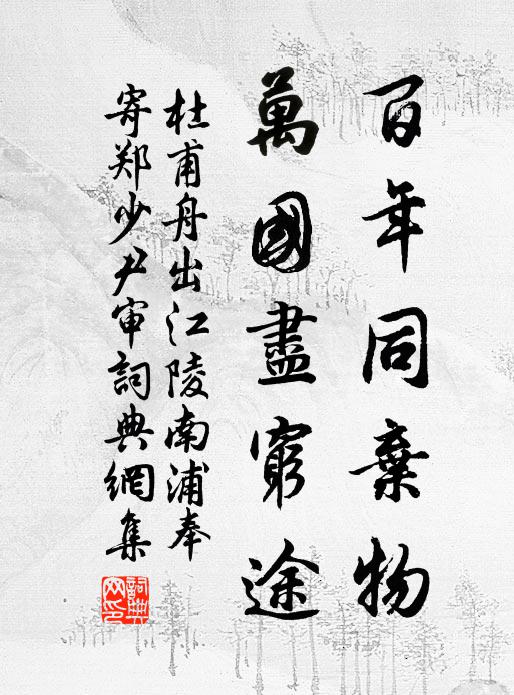 百年同棄物
萬國盡窮途
杜甫舟出江陵南浦奉
寄郑少尹审詞典網集